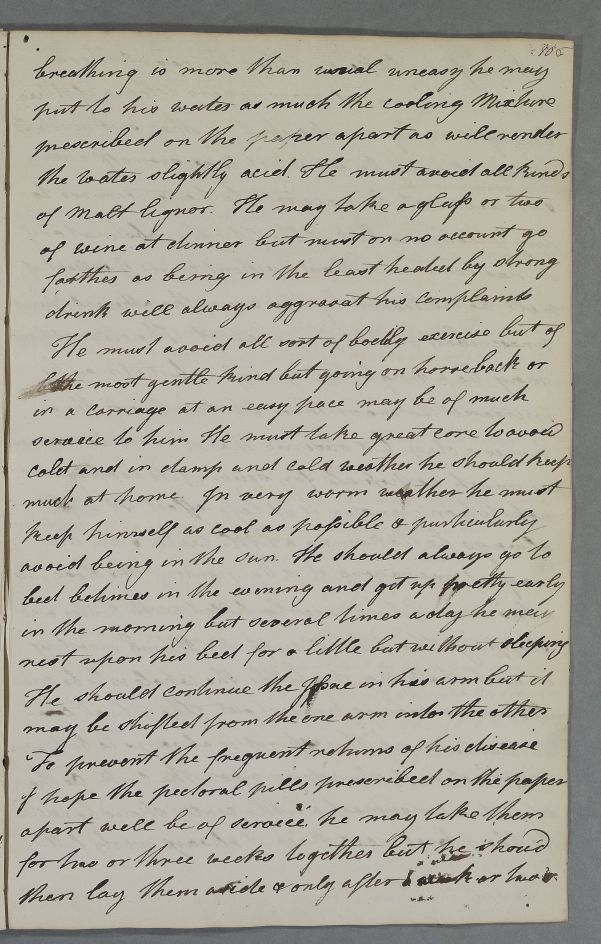 breathing is more than usual uneasy he may
put to his water as much the cooling Mixture
prescribed on the paper apart as will render
the water slightly acid. He must avoid all kinds
of Malt liquor. He may take a glass or two
of wine at dinner but must on no account go
farther as being in the least heated by strong
drink will always aggravat his Complaints
He must avoid all sort of bodily exercise but of
the most gentle kind but going on horseback or
in a carriage at an easy pace may be of much
service to him He must take great care to avoid
cold and in damp and cold weather he should keep
much at home. In very warm weather he must
keep himself as cool as possible & particularly
avoid being in the sun. He should always go to
bed betimes in the evening and get up pretty early
in the morning but several times a day he may
rest upon his bed for a little but without sleeping
He should continue the Issue in his arm but it
may be shifted from the one arm into the other
To prevent the frequent returns of his disease
I hope the pectoral pills prescribed on the paper
apart will be of service. he may take them
for two or three weeks together but he should
then lay them aside & only after a week or two